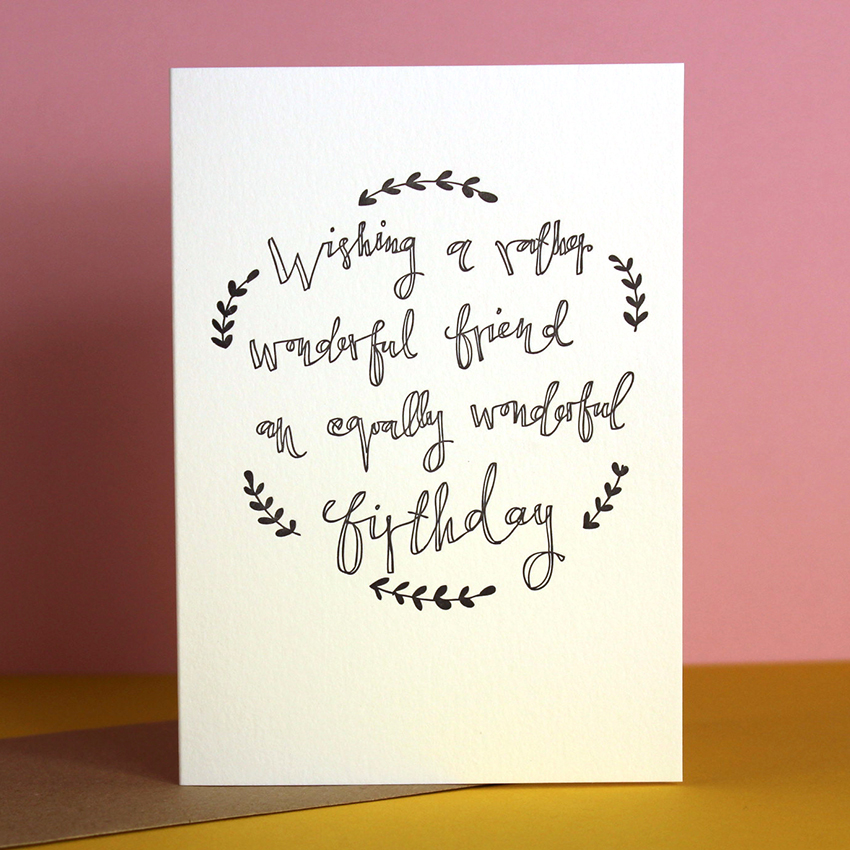 Wishing a rather
wonderful friend
an equally wonderful
birthday